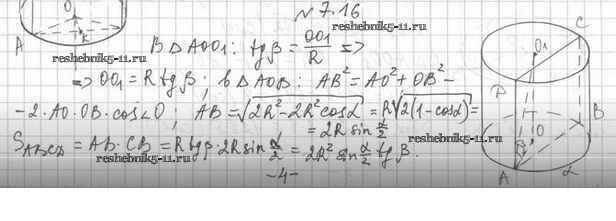 № 7.16
reshebnik5-11.ru
В △ AOO₁: tgβ = OO₁/R =>
reshebnik5-11.ru
=> OO₁ = R tgβ; в △ AOB: AB² = AO² + OB² -
- 2·AO·OB·cos∠O; AB = √(2R² - 2R²cosα) = R√(2(1-cosα)) =
= 2R sin α/2
S_ABCD = AB · CB = R tgβ · 2R sin α/2 = 2R² sin α/2 tgβ.
reshebnik5-11.ru
-4-
O
A
R
C
O₁
D
reshebnik5-11.ru
B
O
β
A
α